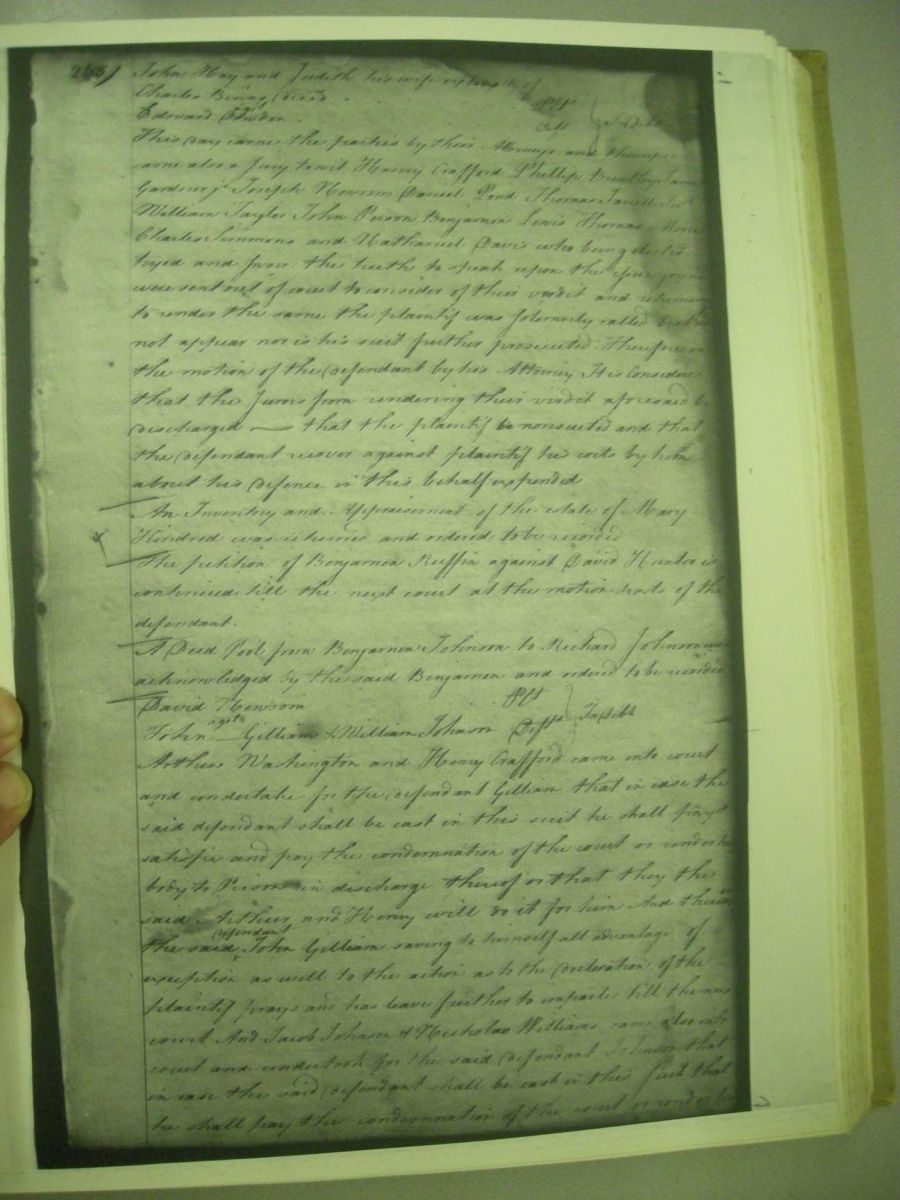 265)
John Hay and Judith his wife of
Charles Binns Decd. Plts
Edward Deft In Debt
This day came the parties by their Attorneys and thereupon
came also a Jury towit Henry Crafford Phillip Bentley James
Gardner Joseph Newsom Daniel Pond Thomas
William Taylor John Person Benjamin Lewis Thomas
Charles Simmons and Nathaniel Davis who being elected
tryed and Sworn the truth to speak upon the
were sent out of court to consider of their verdit and returning
to render the same the plaintif was Solemnly called but
not appear nor is his suit further prosecuted. Therefore on
the motion of the Defendant by his Attorney It is Considered
that the Jurors from rendering their virdit aforesaid be
discharged — that the plaintif be nonsuited and that
the Defendant recover against plaintif his costs by him
about his Defence in this behalf expended
An Inventory and Appraisement of the estate of Mary
Kindred was returned and ordered to be recorded
The petition of Benjamin Ruffin against David Hunter is
continued till the next court at the motion & costs of the
defendant.
A Deed Pool from Benjamin Johnson to Richard Johnson was
acknowledged by the said Benjamin and ordered to be recorded
David Newsom Plt
agst
John Gilliam & William Johnson Defts In Debt
Arthur Washington and Henry Crafford came into court
and undertake for the Defendant Gilliam that in case the
said defendant shall be cast in this suit he shall
satisfie and pay the condemnation of the court or render his
body to Prison in discharge thereof or that they the
said Arthur and Henry will do it for him And
defendant
the said John Gilliam saving to himself all advantage of
exception as well to the action as to the Decleration of the
plaintif prays and has leave further to imparle till the next
court And Jacob Johnson & Nicholas Williams came also into
court and undertook for the said Defendant Johnson that
in case the said Defendant shall be cast in this Suit that
he shall pay the condemnation of the court or render his